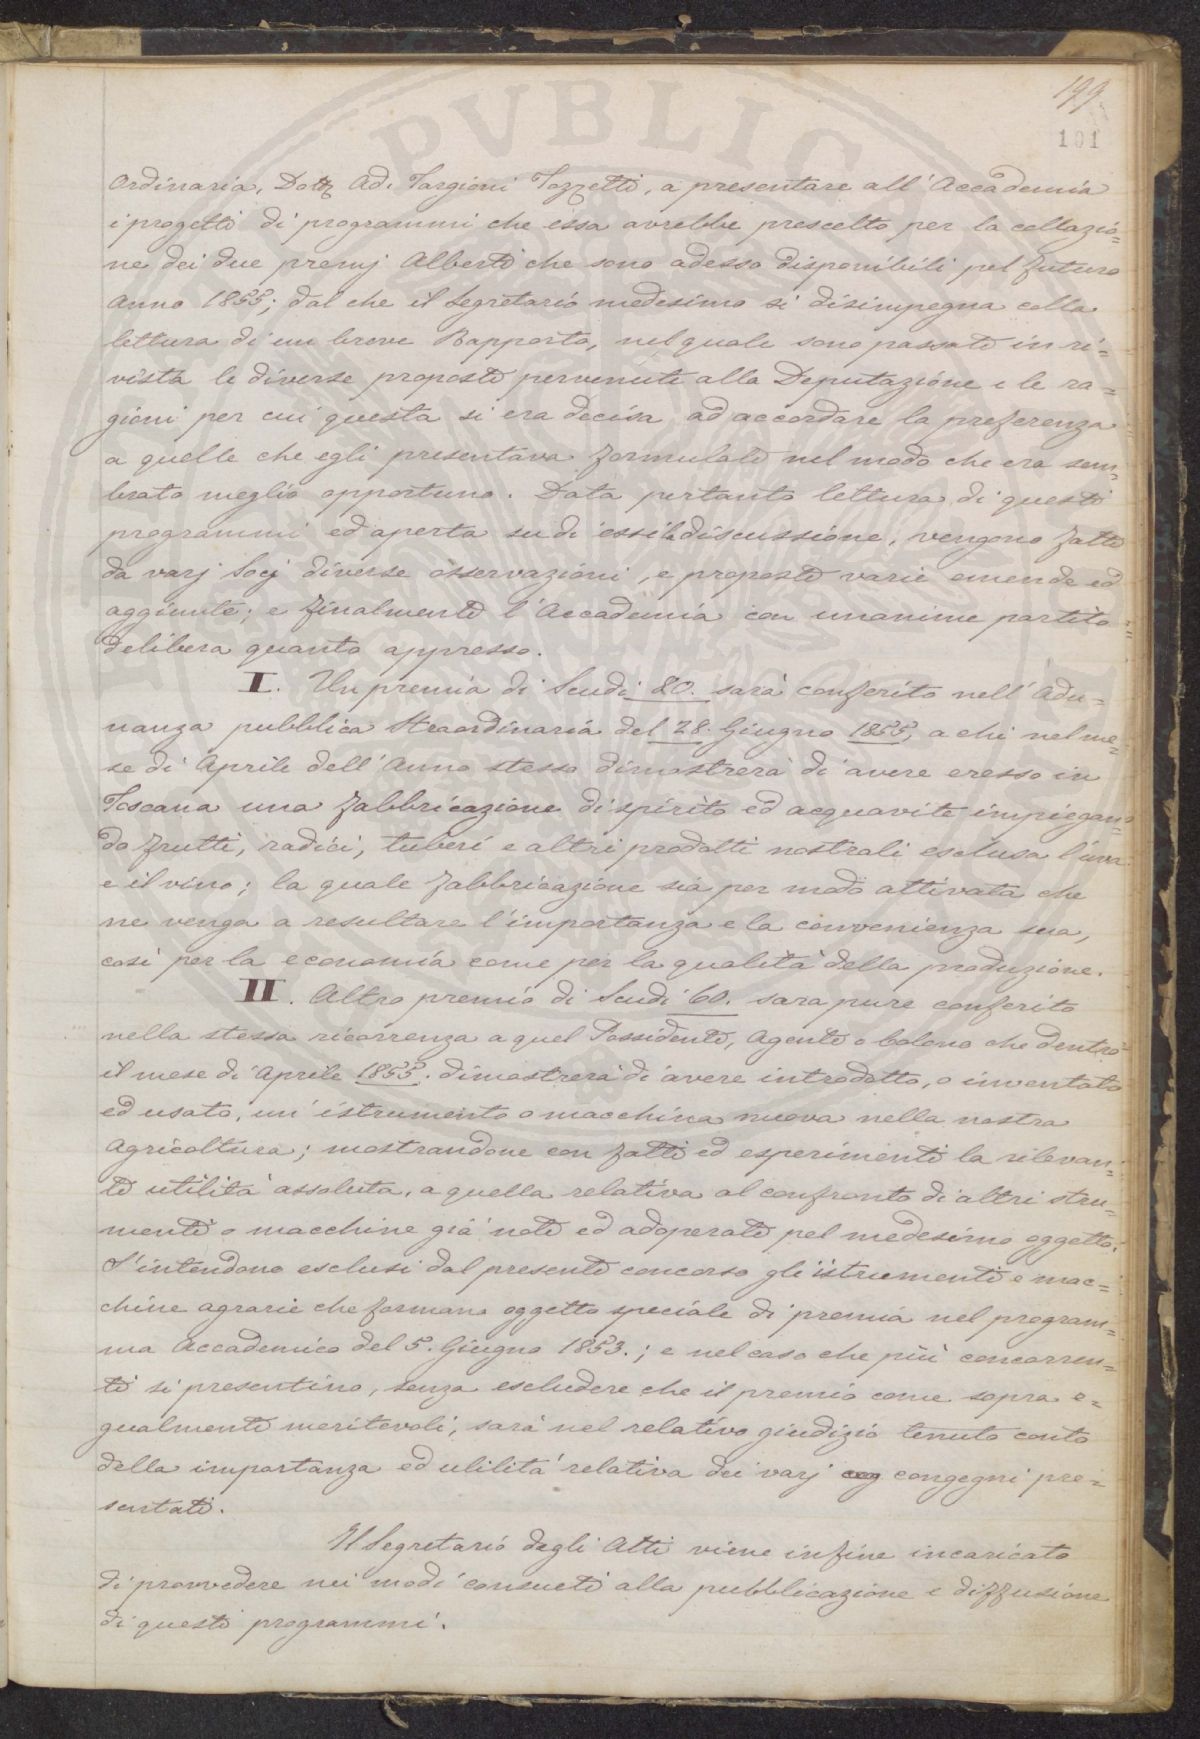 199
101
Ordinaria, Dott. Ad. Targioni Tozzetti, a presentare all'Accademia
i progetti di programmi che essa avrebbe prescelto per la collazio=
ne dei due premj Alberti che sono adesso disponibili pel futuro
Anno 1855; dal che il Segretario medesimo si disimpegna colla
lettura di un breve Rapporto, nel quale sono passate in ri=
vista le diverse proposte pervenute alla Deputazione e le ra=
gioni per cui questa si era decisa ad accordare la preferenza
a quelle che egli presentava formulate nel modo che era sem=
brato meglio opportuno. Data pertanto lettura di questi
programmi ed aperta su di essi la discussione, vengono fatte
da varj Socj diverse osservazioni, e proposte varie emende ed
aggiunte; e finalmente l'Accademia con unanime partito
delibera quanto appresso.
I. Un premio di Scudi 80. sarà conferito nell'Adu=
nanza pubblica Straordinaria del 28. Giugno 1855, a chi nel me=
se di Aprile dell'Anno stesso dimostrerà di avere eresso in
Toscana una fabbricazione di spirito ed acquavite impiegan=
do frutti, radici, tuberi e altri prodotti nostrali esclusa l'uva
e il vino; la quale fabbricazione sia per modo attivata che
ne venga a resultare l'importanza e la convenienza sua,
così per la economia come per la qualità della produzione.
II. Altro premio di Scudi 60. sara pure conferito
nella stessa ricorrenza a quel Possidente, Agente o Colono che dentro
il mese di Aprile 1855. dimostrerà di avere introdotto, o inventato
ed usato, un' istrumento o macchina nuova nella nostra
Agricoltura; mostrandone con fatti ed esperimenti la rilevan=
te utilità assoluta, a quella relativa al confronto di altri stru=
menti o macchine già note ed adoperate pel medesimo oggetto.
S'intendono esclusi dal presente concorso gli istrumenti e mac=
chine agrarie che formano oggetto speciale di premio nel program=
ma Accademico del 5. Giugno 1853.; e nel caso che più concorren=
ti si presentino, senza escludere che il premio come sopra e=
gualmente meritevoli, sarà nel relativo giudizio tenuto conto
della importanza ed utilità relativa dei varj cog congegni pre=
sentati.
Il Segretario degli Atti viene infine incaricato
di provvedere nei modi consueti alla pubblicazione e diffusione
di questi programmi.
PVBLICA